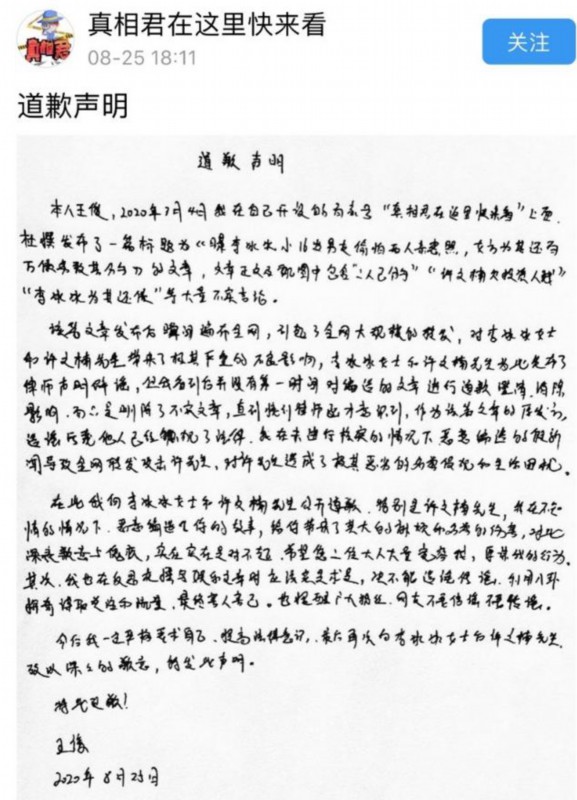 真相君在这里快来看
08-25 18:11
关注
真相君
道歉声明
道歉声明
本人王俊，2020年7月4日我在自己开设的百家号“真相君在这里快来看”上面
杜撰发布了一篇标题为《曝李冰冰小16岁男友 两人亲密照，女方为其还百
万债务致其 》的文章，文章正文及配图中包含“二人已 ”“许文楠欠投资人钱”
“李冰冰为其还债”等大量不实言论。
该篇文章发布后瞬间遍布全网，引起了全网大规模的转发，对李冰冰女士
和许文楠先生带来了极其严重的不良影响，李冰冰女士和许文楠先生为此发布了
律师声明辟谣，但我看到后并没有第一时间对编造的文章进行道歉澄清、消除
影响，而只是删除了不实文章，直到接到律师函才意识到，作为该篇文章的原发者，
造谣诋毁他人已经触犯了法律。我在未进行核实的情况下恶意编造的假新
闻导致全网转发攻击许先生，对许先生造成了极其恶劣的名誉侵犯和生活困扰。
在此我向李冰冰女士和许文楠先生公开道歉。特别是许文楠先生，我在不知
情的情况下，恶意编造了你的故事，给你带来了莫大的 和名誉的伤害，对此
深表歉意与愧疚，实在实在是对不起。希望您二位大人大量宽容 ，原谅我的行为。
其次，我也在反思文 的文章时应该实事求是，绝不能造谣传谣，利用八卦
新闻谋取关注和流量，最终害人害己。也提醒广大粉丝、网友不信谣不传谣。
今后我一定严格要求自己，提高法律意识，最后再次向李冰冰女士和许文楠先生
致以深深的歉意，特发此声明。
特此道歉！
王俊
2020年8月25日